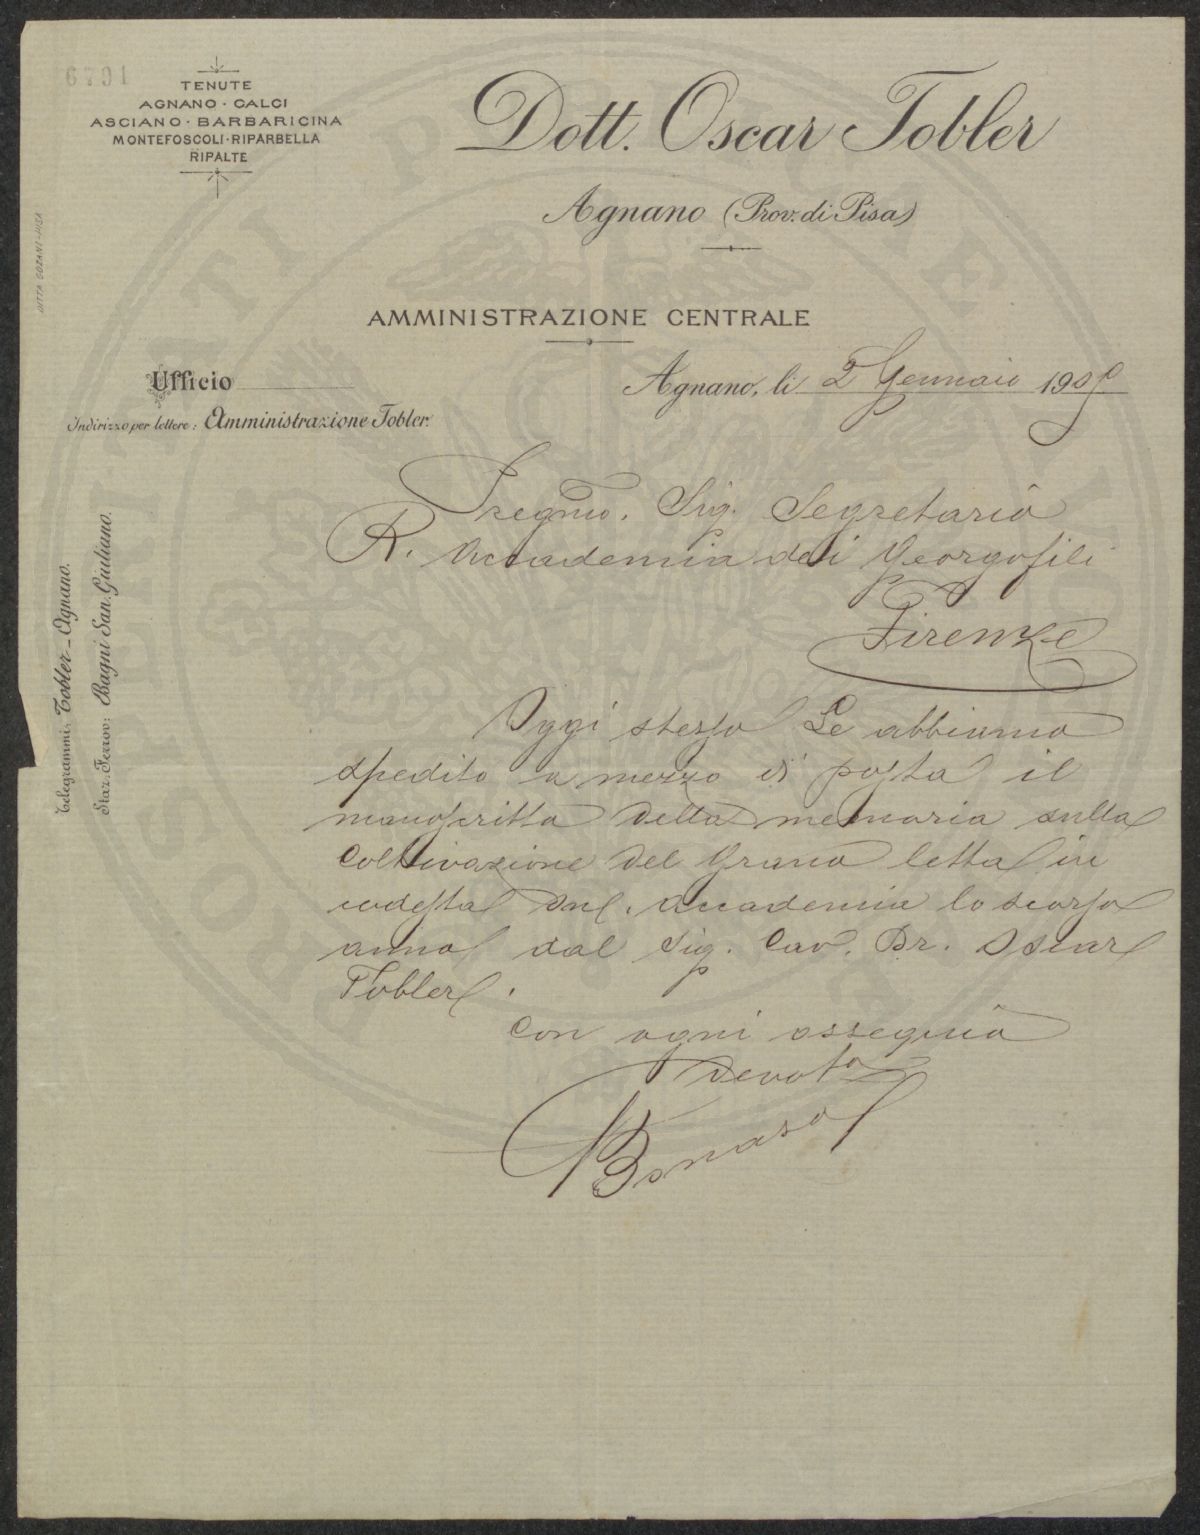 6791
TENUTE
AGNANO · CALCI
ASCIANO · BARBARICINA
MONTEFOSCOLI · RIPARBELLA
RIPALTE
Dott. Oscar Tobler
Agnano (Prov. di Pisa)
DITTA GOZANI - PISA
AMMINISTRAZIONE CENTRALE
Ufficio
Agnano, li 2 Gennaio 190
Indirizzo per lettere: Amministrazione Tobler.
Telegrammi: Tobler - Agnano.
Staz. Ferrov: Bagni San Giuliano.
Pregmo. Sig. Segretario
R. Accademia dei Georgofili
Firenze
Oggi stesso Le abbiamo
spedito a mezzo di posta il
manoscritto della memoria sulla
Coltivazione del Grano letta in
codesta Accademia lo scorso
anno dal Sig. Cav. Dr. Oscar
Tobler.
Con ogni ossequio
Devoto